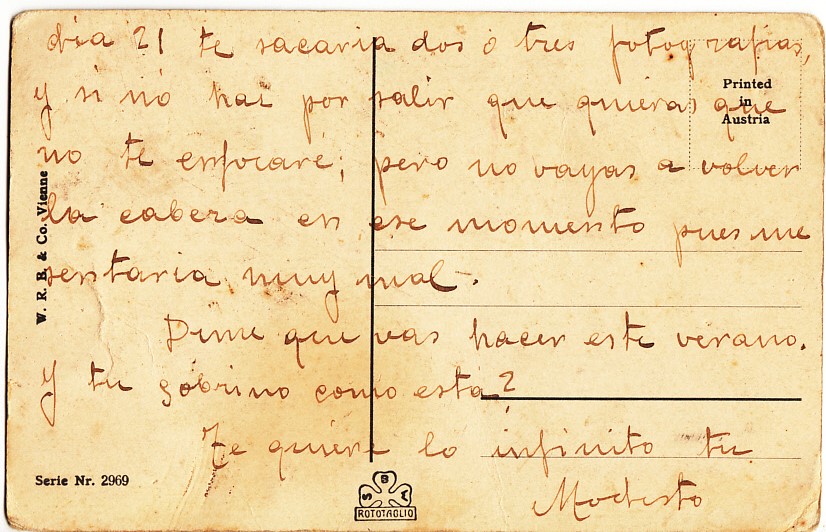 día 21 te sacaria dos ó tres fotografias,
y si nó hai por salir que quieras que
no te enfocaré; pero no vayas a volver
la cabera en ese momento pues me
sentaria muy mal.
Dime que vas hacer este verano.
Y tu sobrino como está?
Te quiere lo infinito tu
Modesto
Printed
in
Austria
W. R. B. & Co. Vienne
Serie Nr. 2969
S B A
ROTOTAGLIO